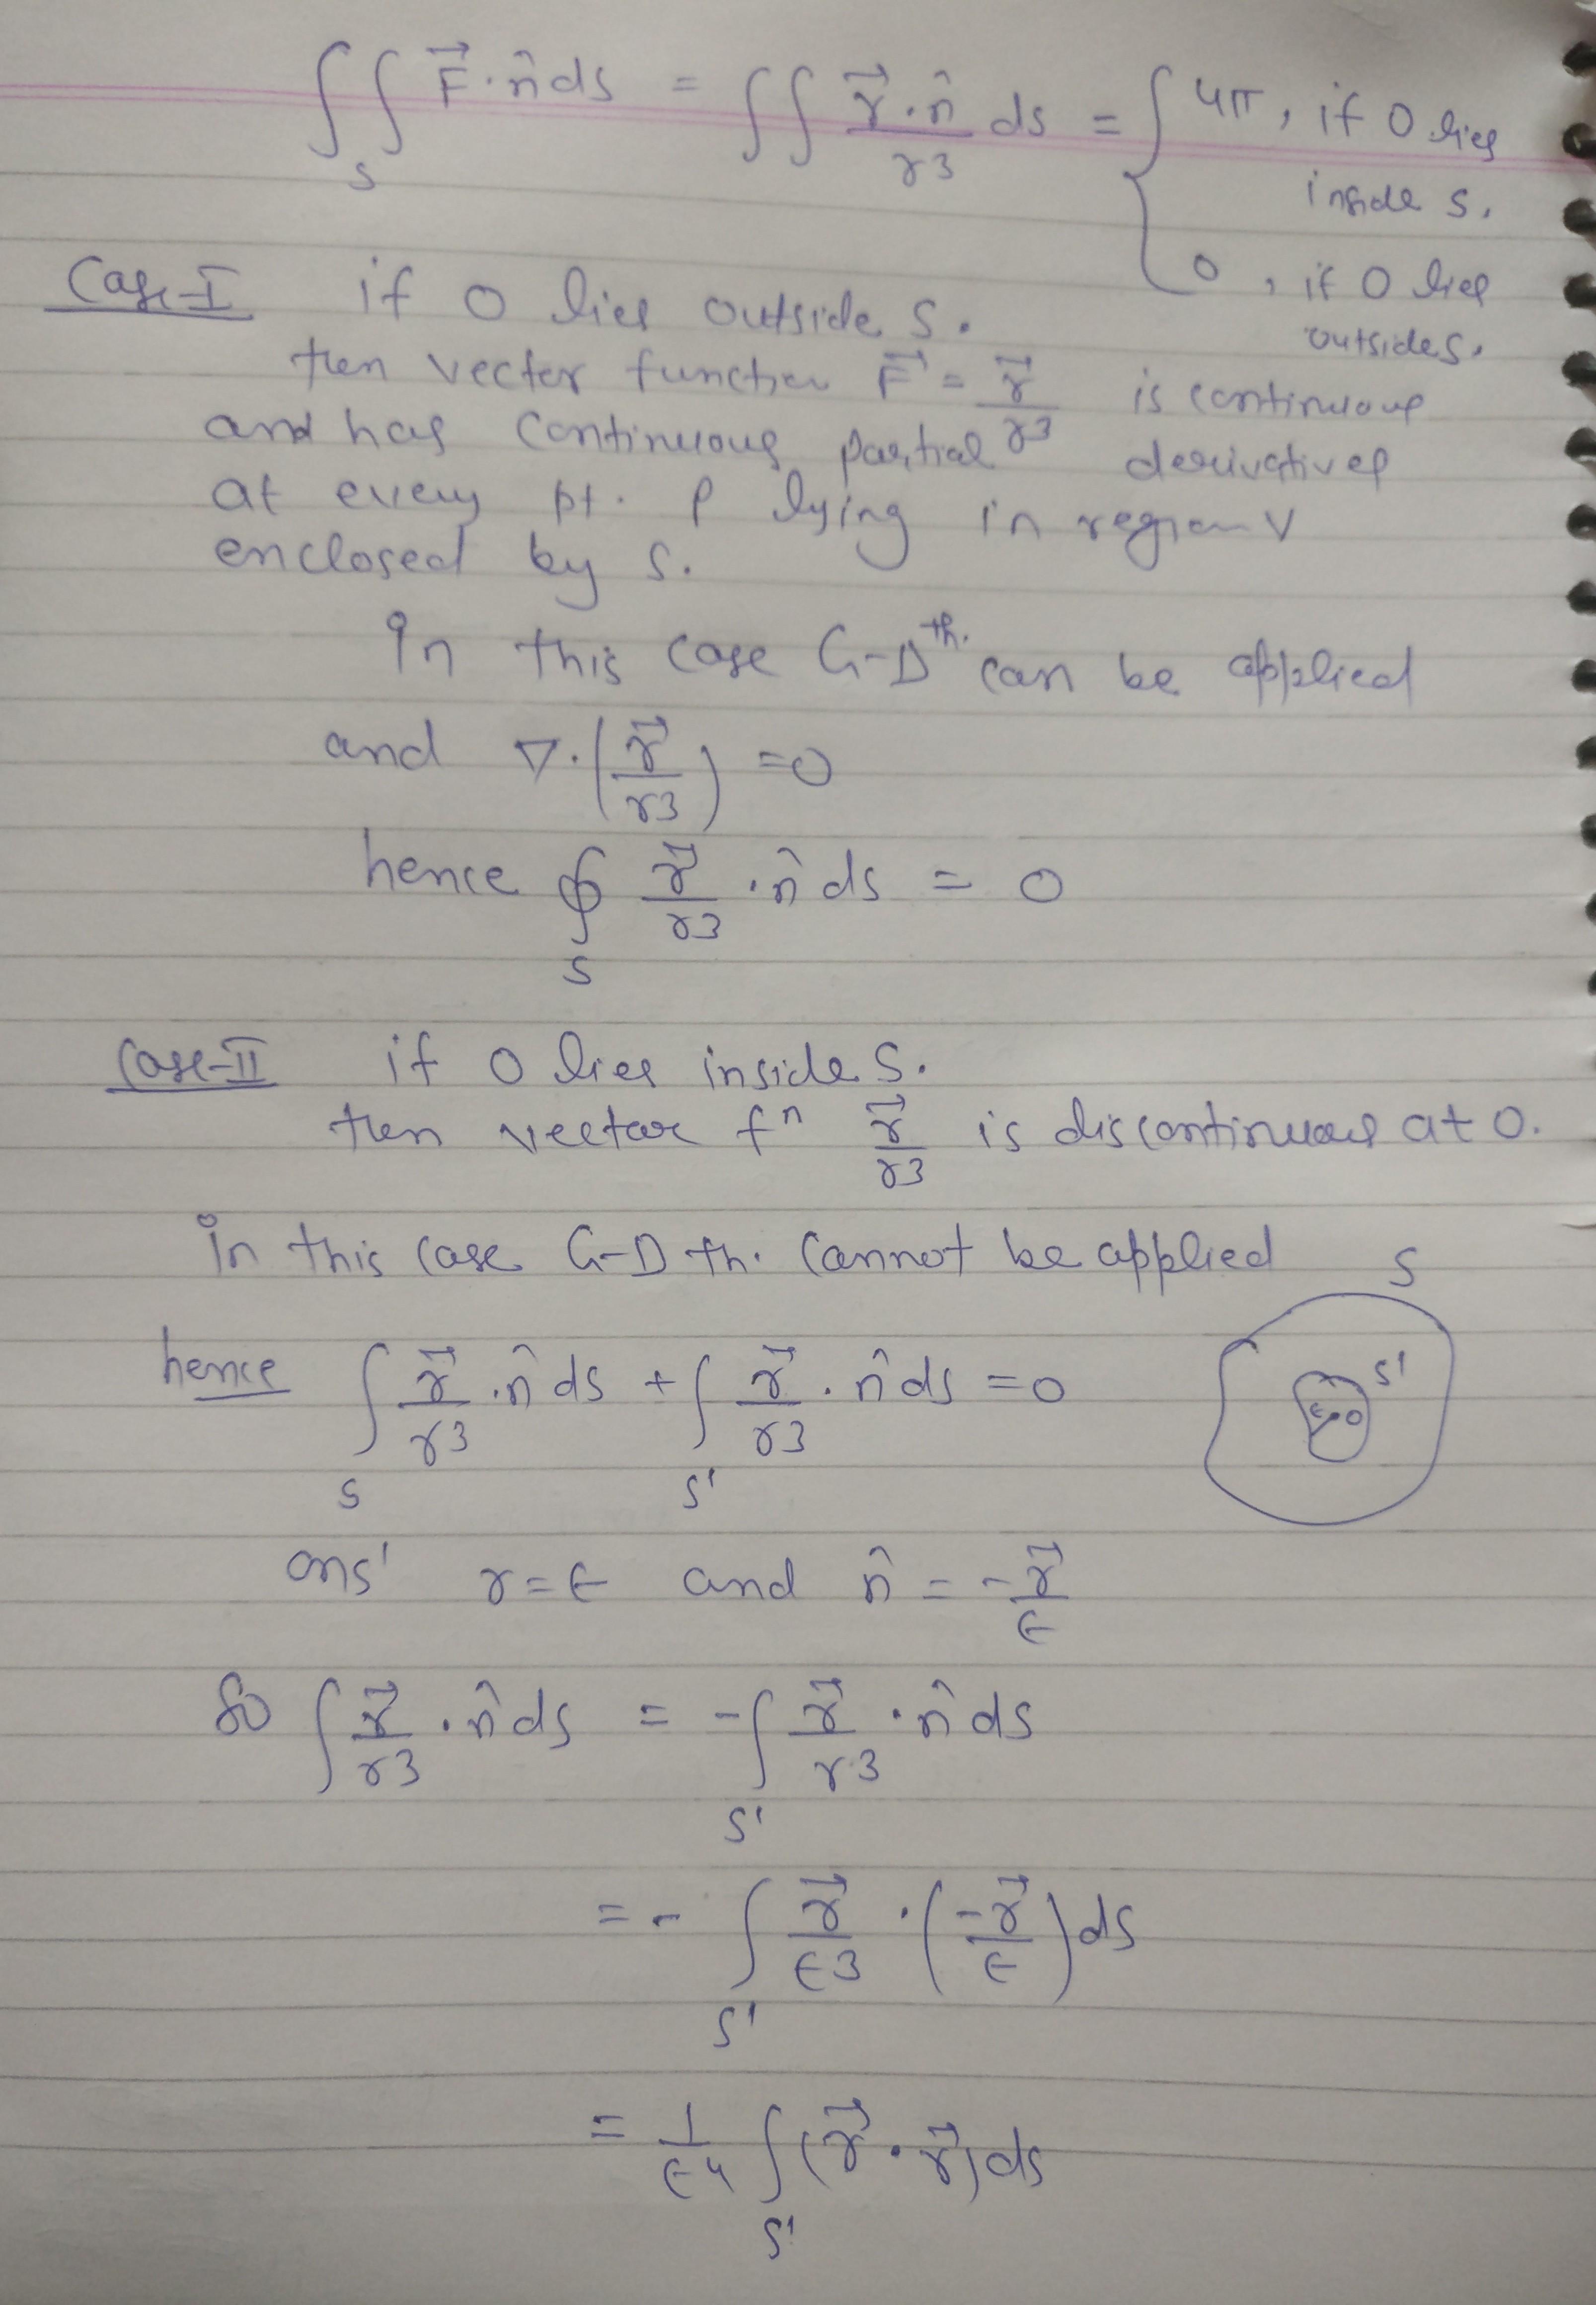 ∫∫_S F⃗·n̂ ds = ∫∫ r⃗·n̂/r3 ds = { 4π, if O lies
inside S.
0, if O lies
outside S.
Case-I if O lies outside S.
then vector function F⃗ = r⃗/r3 is continuous
and has continuous partial derivatives
at every pt. P lying in region V
enclosed by S.
In this case G-D th. can be applied
and ∇·(r⃗/r3) = 0
hence ∮_S r⃗/r3 ·n̂ ds = 0
Case-II if O lies inside S.
then vector fⁿ r⃗/r3 is discontinuous at O.
In this case G-D th. cannot be applied
S
hence ∫_S r⃗/r3 ·n̂ ds + ∫_S' r⃗/r3 ·n̂ ds = 0
S'
ϵ O
on S' r = ϵ and n̂ = -r⃗/ϵ
So ∫ r⃗/r3 ·n̂ ds = -∫_S' r⃗/r3 ·n̂ ds
= - ∫_S' r⃗/ϵ3 ·(-r⃗/ϵ) ds
= 1/ϵ4 ∫_S' (r⃗·r⃗) ds